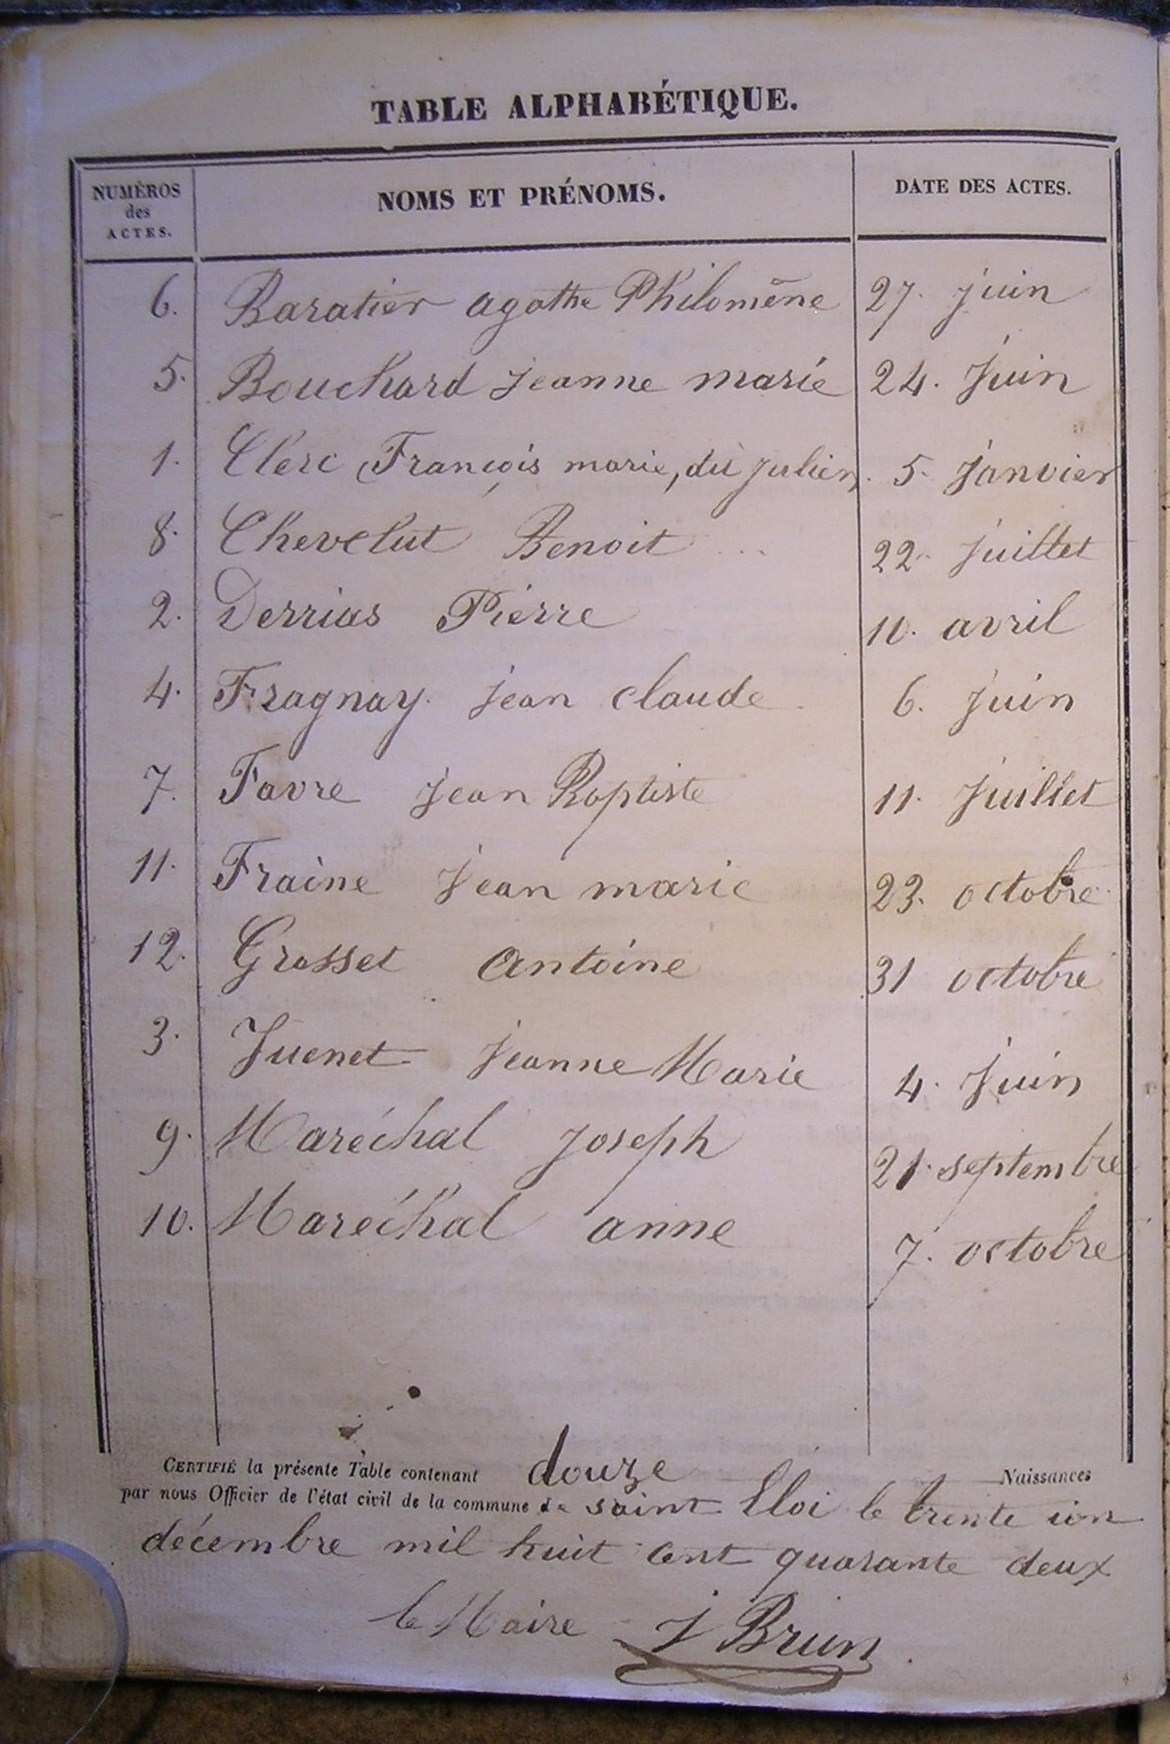 TABLE ALPHABÉTIQUE.
NUMÉROS des ACTES. NOMS ET PRÉNOMS. DATE DES ACTES.
6. Baratier agathe Philomène 27. juin
5. Bouchard jeanne marie 24. juin
1. Clerc François marie, dit julien. 5. janvier
8. Chevelut Benoit 22. juillet
2. Derrias Pierre 10. avril
4. Fragnay. jean claude 6. juin
7. Favre jean Baptiste 11. juillet
11. Fraine jean marie 23. octobre
12. Grosset antoine 31 octobre
3. Juenet jeanne Marie 4. juin
9. Maréchal joseph 21. septembre
10. Maréchal anne 7. octobre
CERTIFIÉ la présente Table contenant douze Naissances
par nous Officier de l'état civil de la commune de saint Eloi le trente un
décembre mil huit cent quarante deux
le Maire J Brun